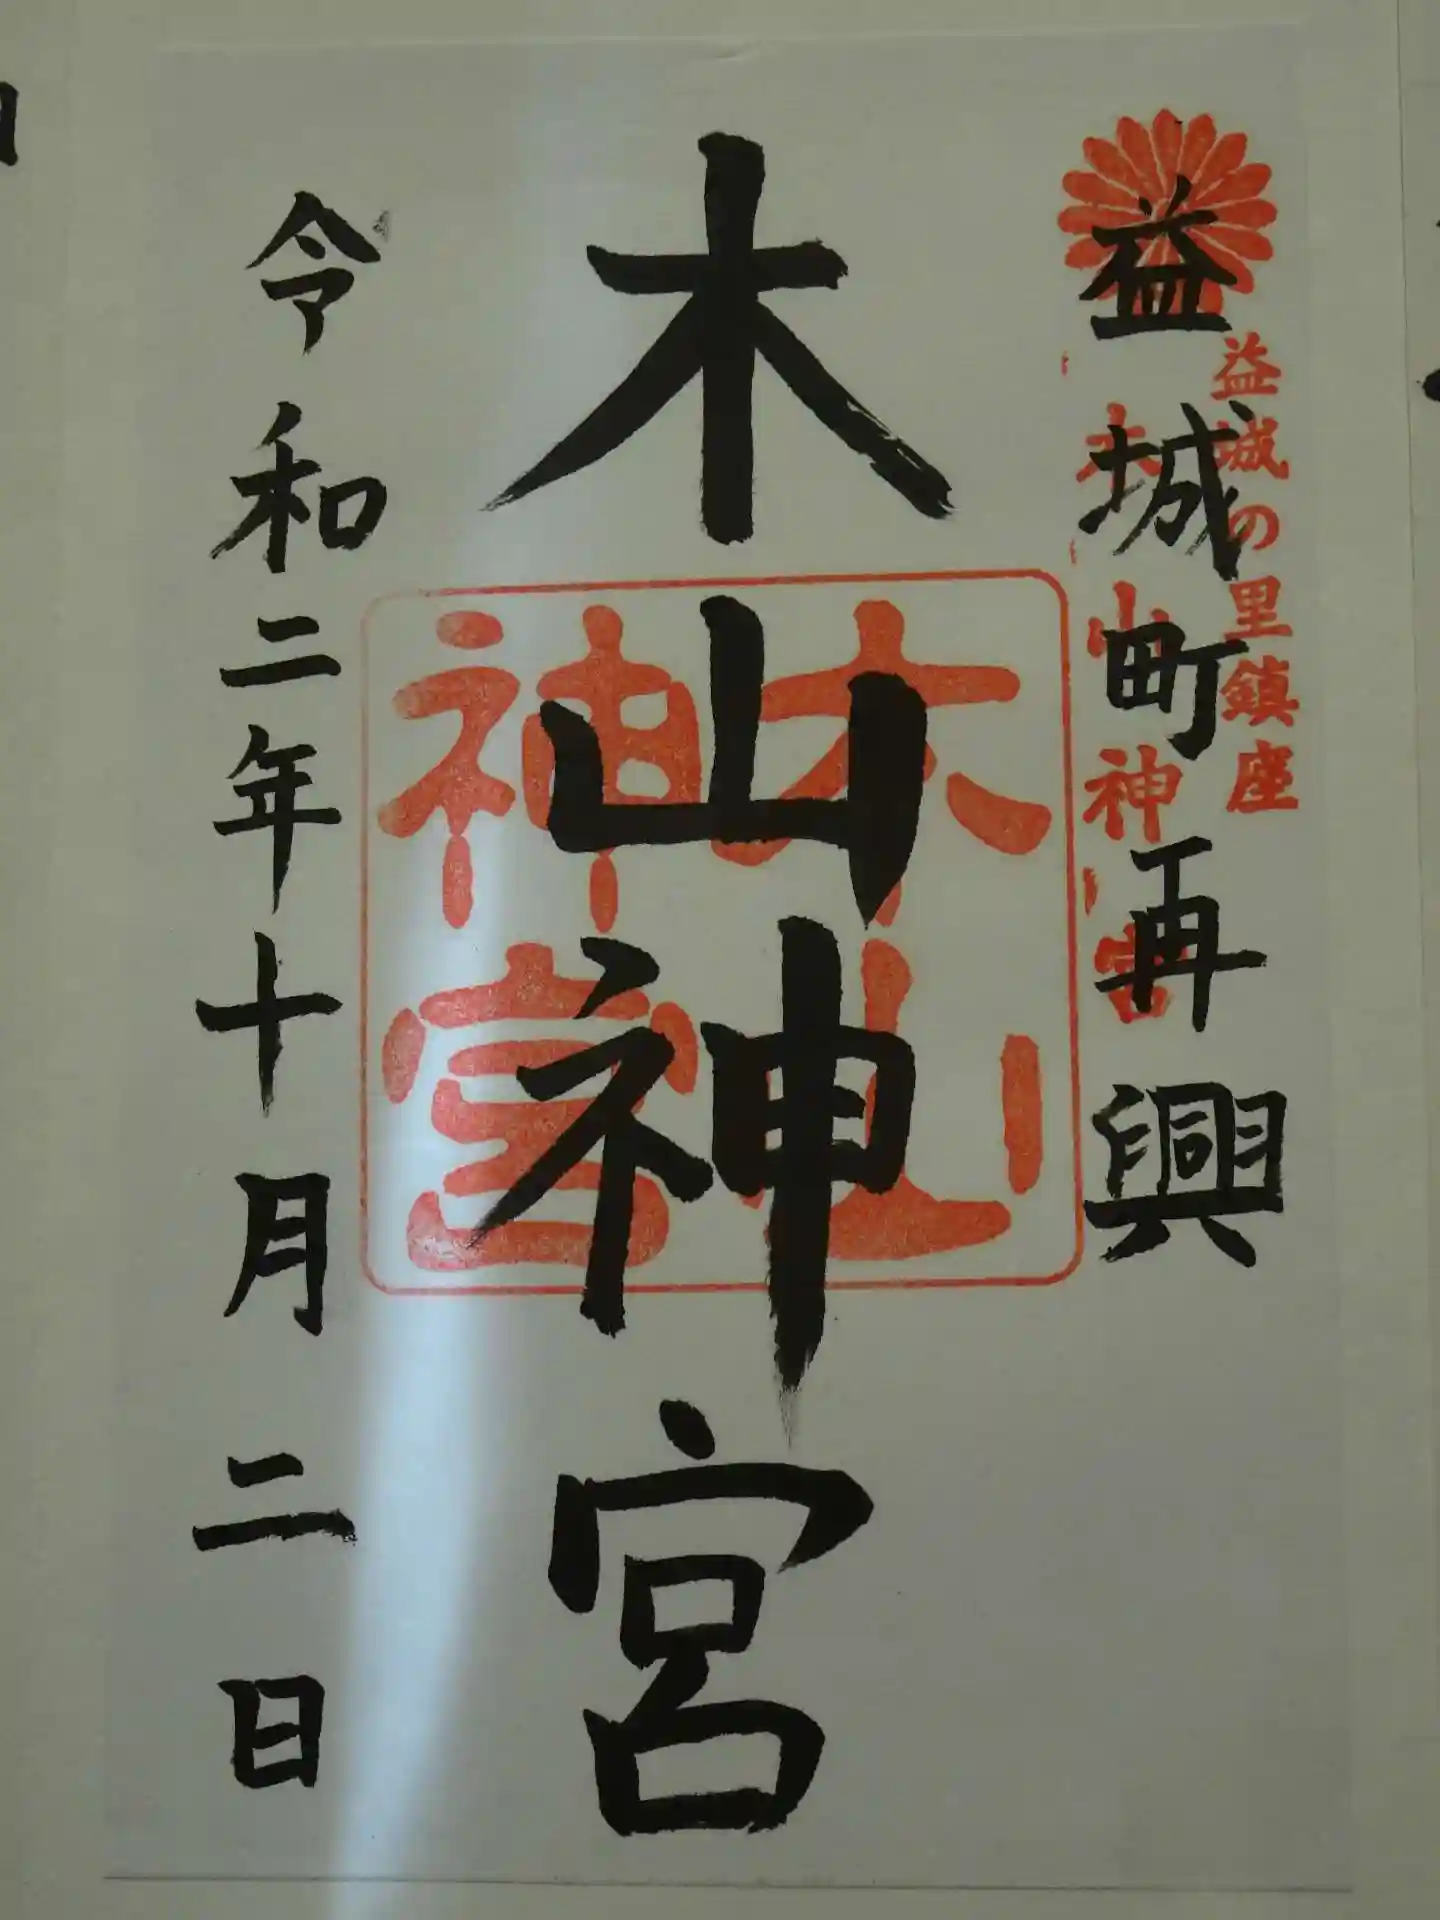 益城の里鎮座
木山神宮
益城町再興
木山神宮
木山
神宮
令和二年十月二日